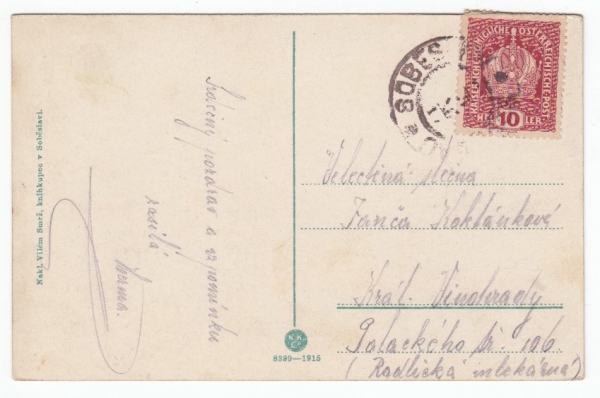 Nakl. Vilém Smrž, knihkupec v Soběslavi.
Srdečný pozdrav a vzpomínku
zasílá
SOBĚS
KAISERLICHE KÖNIGLICHE ÖSTERREICHISCHE POST
10
HELLER
Velectěná slečna
Janča Koktánková
Král. Vinohrady
Palackého tř. 106
(Radlická mlekárna)
8399—1915